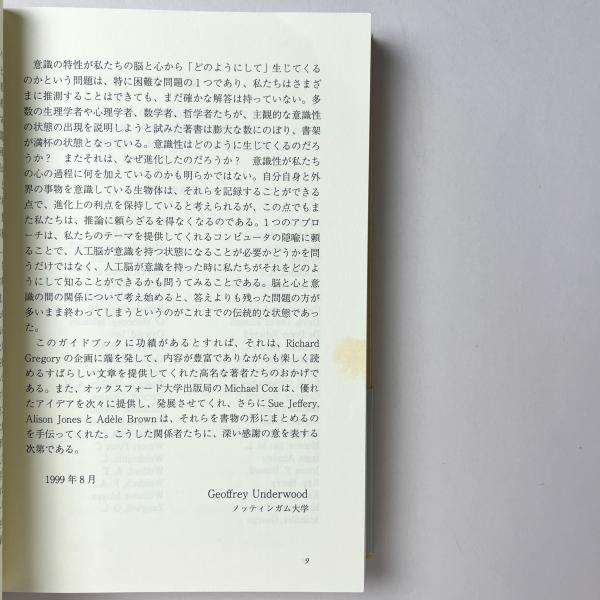 意識の特性が私たちの脳と心から「どのようにして」生じてくる
のかという問題は、特に困難な問題の1つであり、私たちはさまざ
まに推測することはできても、まだ確かな解答は持っていない。多
数の生理学者や心理学者、数学者、哲学者たちが、主観的な意識性
の状態の出現を説明しようと試みた著書は膨大な数にのぼり、書架
が満杯の状態となっている。意識性はどのように生じてくるのだろ
うか？　またそれは、なぜ進化したのだろうか？　意識性が私たち
の心の過程に何を加えているのかも明らかではない。自分自身と外
界の事物を意識している生物体は、それらを記録することができる
点で、進化上の利点を保持していると考えられるが、この点でもま
た私たちは、推論に頼らざるを得なくなるのである。1つのアプロ
ーチは、私たちのテーマを提供してくれるコンピュータの隠喩に頼
ることで、人工脳が意識を持つ状態になることが必要かどうかを問
うだけではなく、人工脳が意識を持った時に私たちがそれをどのよ
うにして知ることができるかも問うてみることである。脳と心と意
識の間の関係について考え始めると、答えよりも残った問題の方が
多いまま終わってしまうというのがこれまでの伝統的な状態であっ
た。
このガイドブックに功績があるとすれば、それは、Richard
Gregory の企画に端を発して、内容が豊富でありながらも楽しく読
めるすばらしい文章を提供してくれた高名な著者たちのおかげで
ある。また、オックスフォード大学出版局の Michael Cox は、優れ
たアイデアを次々に提供し、発展させてくれ、さらに Sue Jeffery,
Alison Jones と Adèle Brown は、それらを書物の形にまとめるの
を手伝ってくれた。こうした関係者たちに、深い感謝の意を表する
次第である。
1999 年 8 月
Geoffrey Underwood
ノッティンガム大学
9